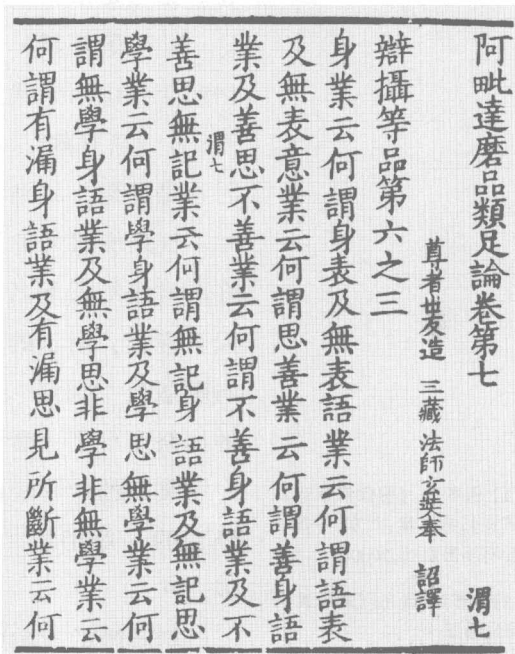 阿毗達磨品類足論卷第七
渭七
尊者世友造 三藏法師玄奘奉 詔譯
辯攝等品第六之三
身業云何謂身表及無表語業云何謂語表
及無表意業云何謂思善業云何謂善身語
業及善思不善業云何謂不善身語業及不
渭七
善思無記業云何謂無記身語業及無記思
學業云何謂學身語業及學思無學業云何
謂無學身語業及無學思非學非無學業云
何謂有漏身語業及有漏思見所斷業云何